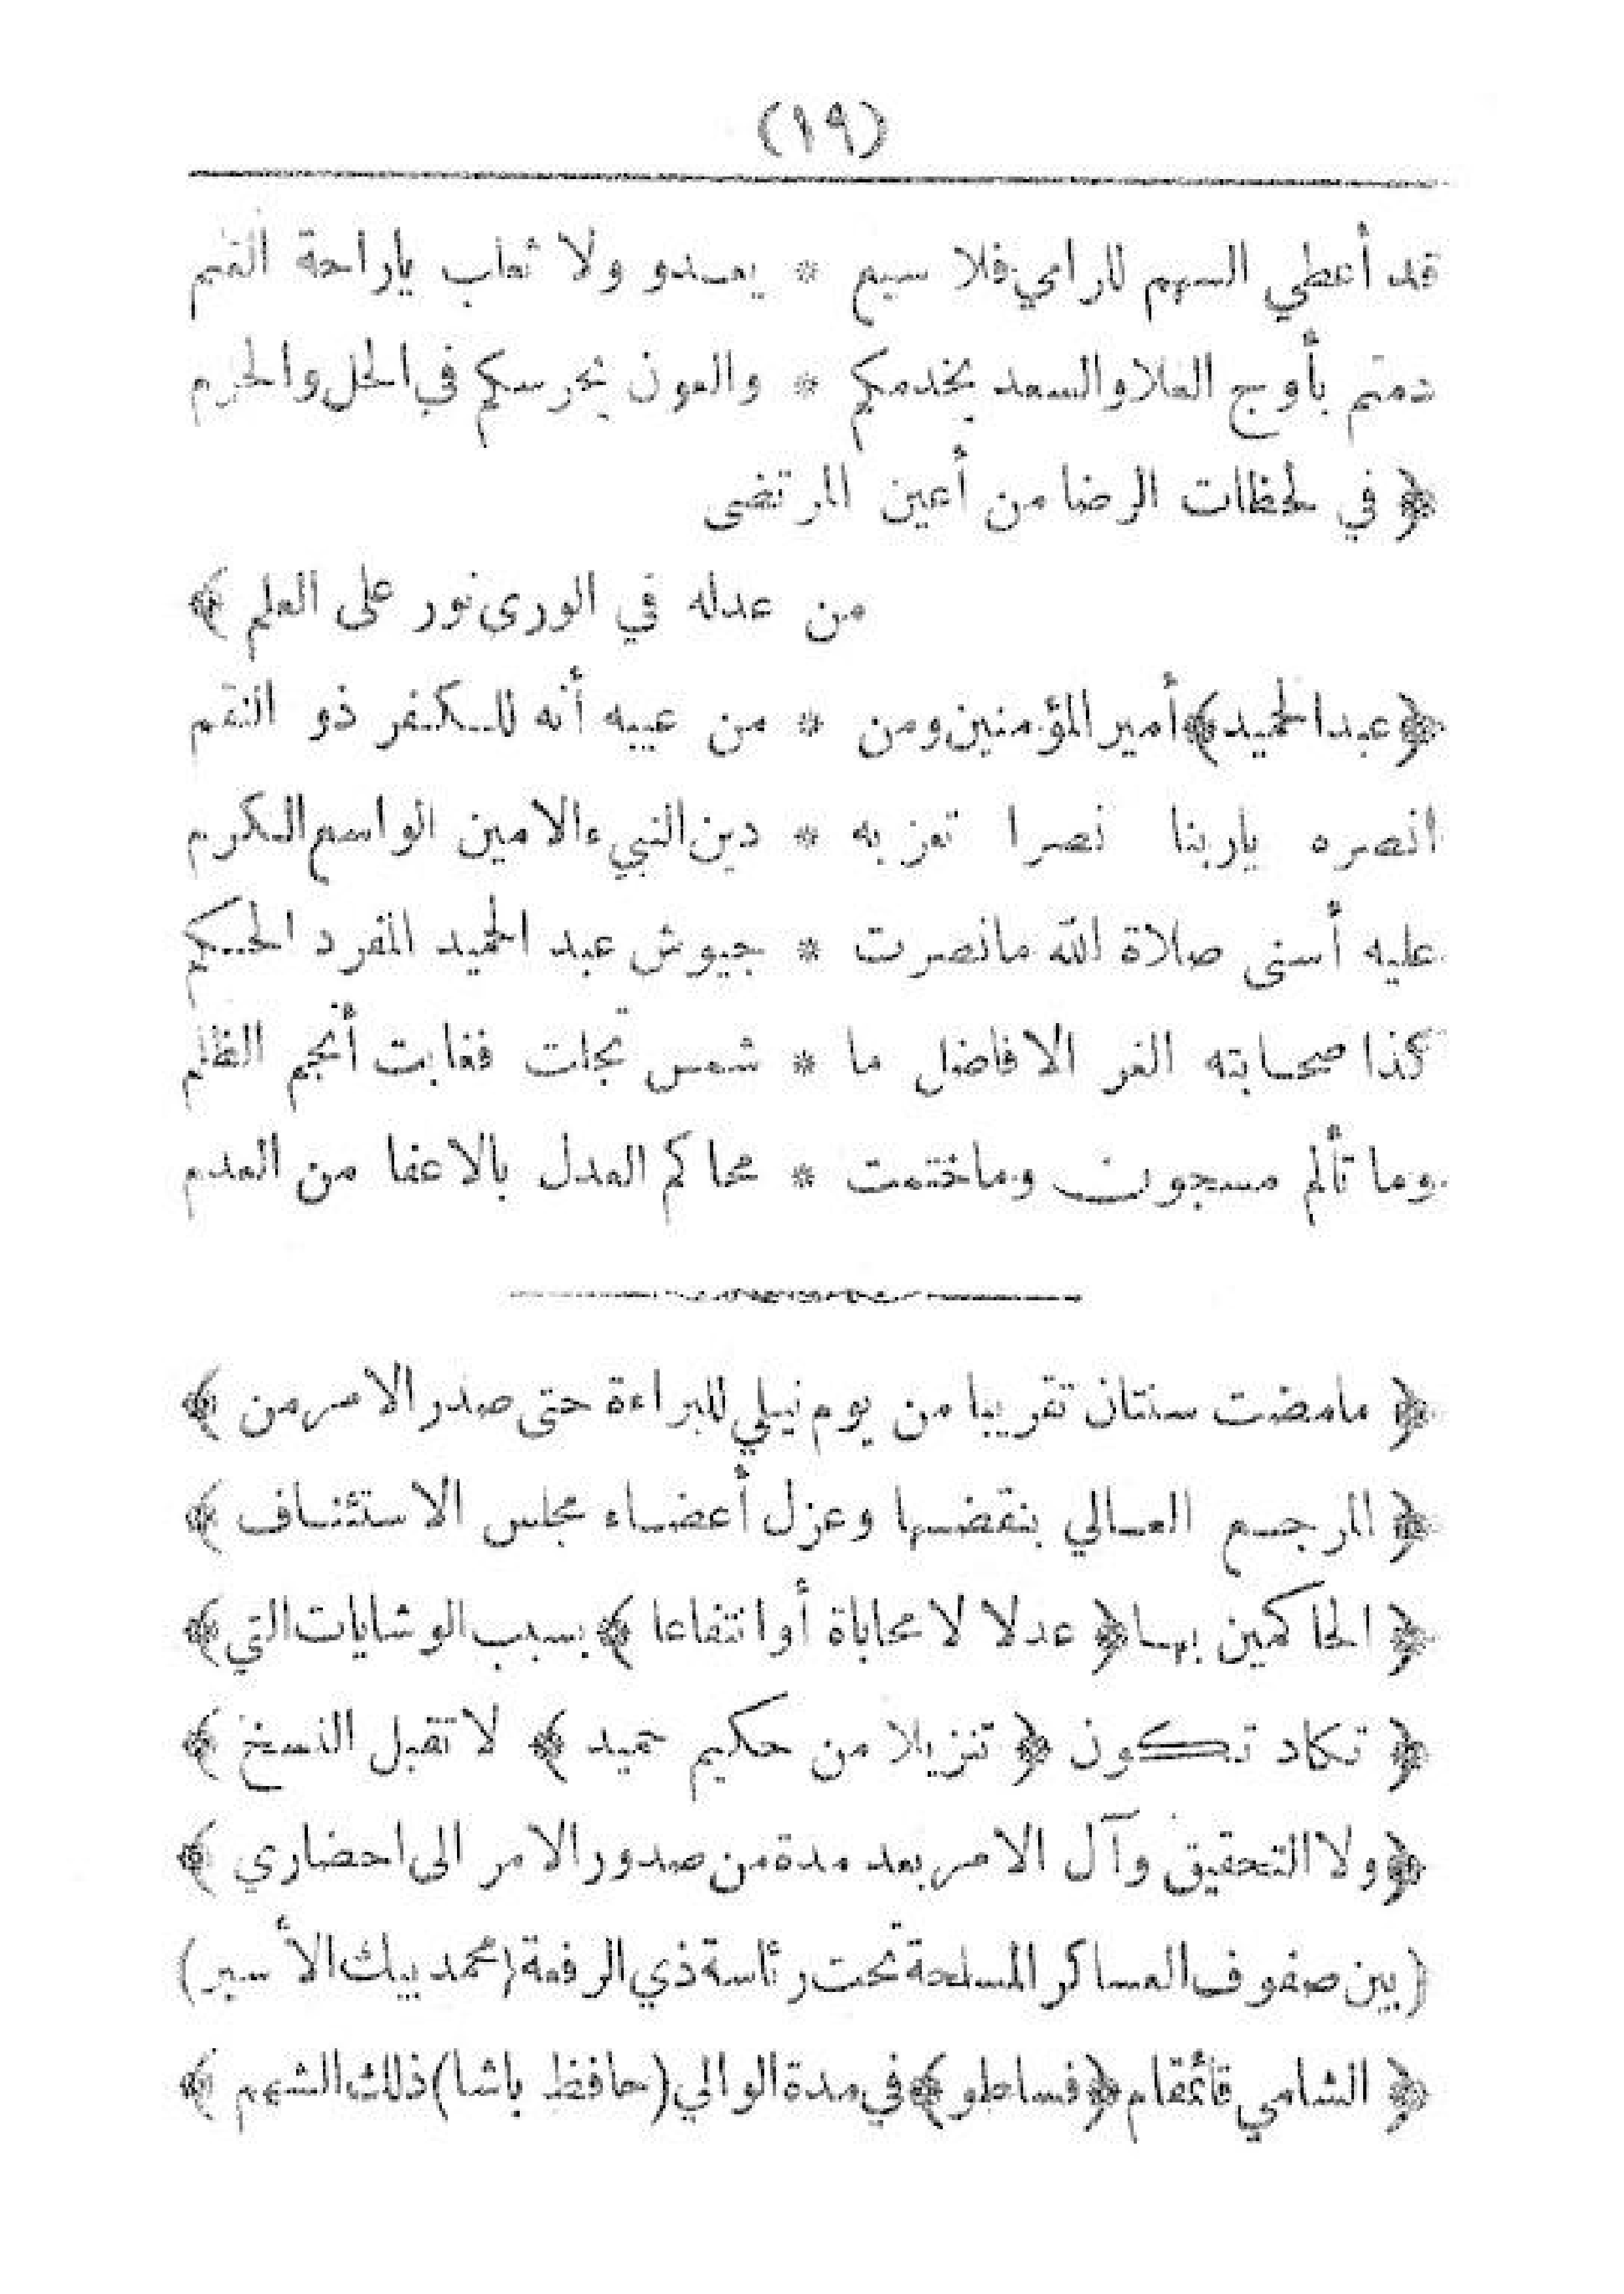 (١٩)
قد أعطي السهم للرامي فلا سبع * يعدو ولا ثعلب ياراحة الغنم
دمتم بأوج العلا والسعد يخدمكم * والعون يحرسكم في الحل والحرم
﴿ في لحظات الرضا من أعين المرتضى
من عدله في الورى نور على العلم ﴾
﴿عبد الحميد﴾ أمير المؤمنين ومن * من عيبه أنه للكفر ذو النقم
انصره ياربنا نصرا تعز به * دين النبيء الامين الواسع الكرم
عليه أسنى صلاة الله مانصرت * جيوش عبد الحميد المفرد الحكم
كذا صحابته الغر الافاضل ما * شمس تجلت فغابت أنجم الظلم
وما تألم مسجون وما ختمت * محاكم العدل بالاعفا من العدم
﴿ مامضت سنتان تقريبا من يوم نيلي للبراءة حتى صدر الامر من ﴾
﴿ المرجع العالي بنقضها وعزل أعضاء مجلس الاستئناف ﴾
﴿ الحاكمين بها ﴿ عدلا لا محاباة أو انتفاعا ﴾ بسبب الوشايات التي ﴾
﴿ تكاد تكون ﴿ تنزيلا من حكيم حميد ﴾ لا تقبل النسخ ﴾
﴿ ولا التحقيق وآل الامر بعد مدة من صدور الامر الى احضاري ﴾
(بين صفوف العساكر المسلحة تحت رئاسة ذي الرفعة (محمد بيك الأسير)
﴿ الشامي قائمقام ﴿فساطو﴾ في مدة الوالي (حافظ باشا) ذلك الشهم ﴾